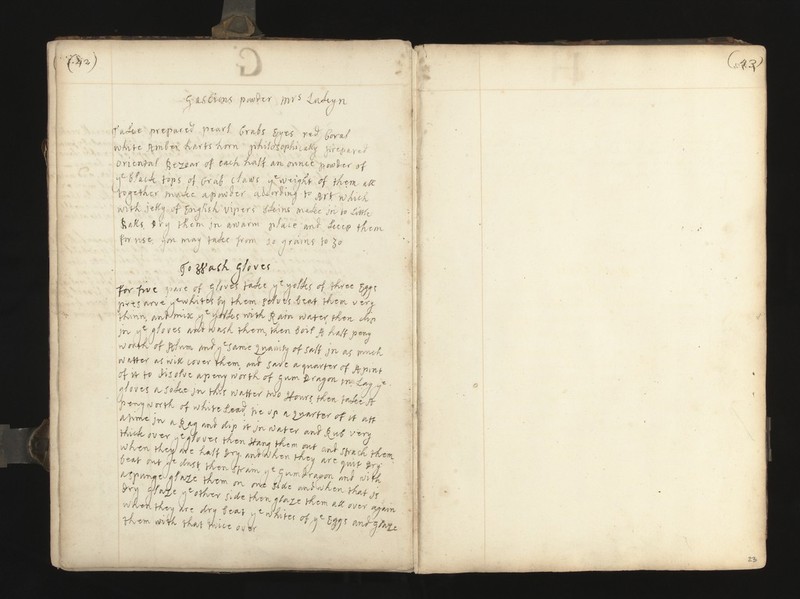 (42)
G
Gascoins powder Mrs
Take prepared pearl Crabs Eyes red Coral
White Amber harts horn philosophically prepared
oriental Bezoar of each half an ounce powder of
ye black tops of Crab claws ye weight of them all
together make a powder according to Art which
with jelly of English vipers skins make in to Little
Balls dry them in a warm place and keep them
for use you may take from 20 grains to 30
To Wash Gloves
For five pare of Gloves take ye yolks of three Eggs
presarve ye whites by them selves beat them very
thinn, and mix ye yolks with Rain water then dip
in ye gloves and wash them, then boil A half peny
worth of Alum and ye same quantity of salt in as much
watter as will cover them, and save a quarter of A pint
of it to disolve a peny worth of Gum Dragon in Lay ye
gloves a soke in this watter two Hours, then take A
peny worth of white Lead, tie up a quarter of it att
a time in a Rag and dip it in water and Rub very
thick over ye gloves then Hang them out and strach them
when they are half dry, and when they are quit dry
beat out ye dust then strain ye Gum dragon and with
a spunge glaze them on one side and when that is
dry glaze ye other side then glaze them all over again
when they are dry beat ye whites of ye Eggs and glaze
them with that twice over
(43)
H
23